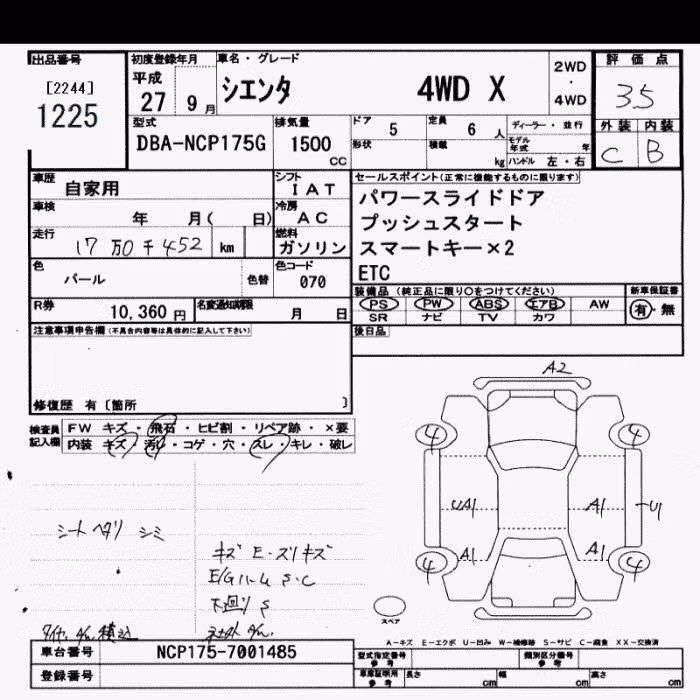 出品番号
[2244]
1225
初度登録年月
平成
27 9 月
車名・グレード
シエンタ 4WD X
2WD
・
4WD
評価点
3.5
外装 内装
C B
型式
DBA-NCP175G
排気量
1500 cc
ドア 5
定員 6 人
形状
積載 kg
ディーラー・並行
モデル年式 年
ハンドル 左・右
車歴
自家用
シフト
IAT
車検
年 月( 日)
冷房
AC
走行
17万0千452 km
燃料
ガソリン
色
パール
色替
色コード
070
R券
10,360 円
名変通知期限
月 日
セールスポイント(正常に機能するものに限ります)
パワースライドドア
プッシュスタート
スマートキー×2
ETC
装備品 (純正品に限り○をつけてください)
PS PW ABS エアB AW
SR ナビ TV カワ
新車保証書
有・無
後日品
注意事項申告欄(不具合内容等は具体的に記入して下さい)
修復歴 有〔箇所 〕
検査員記入欄
FW キズ・飛石・ヒビ割・リペア跡・×要
内装 キズ・汚れ・コゲ・穴・スレ・キレ・破レ
シートヘタリ シミ
キズ E・ズリキズ
E/Gルーム S・C
下廻り S
A2
4 4
UA1 A1 U1
A1 A1
4 4
スペア
A-キズ E-エクボ U-凹み W-補修跡 S-サビ C-腐食 XX-交換済
車台番号
NCP175-7001485
登録番号
型式指定番号
参考
類別区分番号
参考
車庫証明用
参考
長さ cm
幅 cm
高さ cm